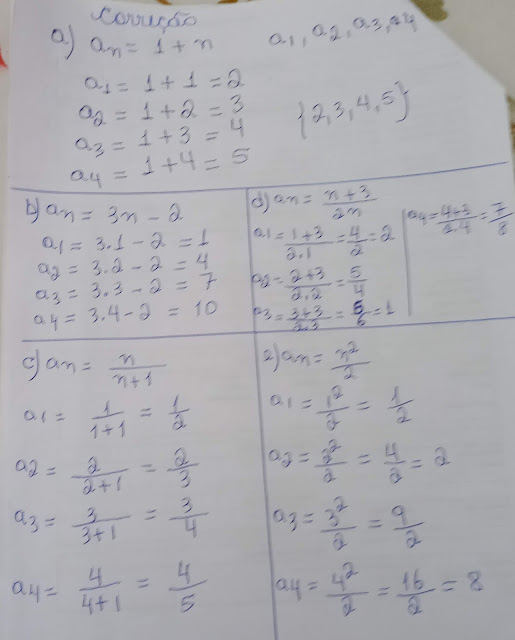 Correção
a) an = 1 + n   a1, a2, a3, a4
a1 = 1 + 1 = 2
a2 = 1 + 2 = 3
a3 = 1 + 3 = 4
a4 = 1 + 4 = 5
{2, 3, 4, 5}
b) an = 3n - 2
a1 = 3.1 - 2 = 1
a2 = 3.2 - 2 = 4
a3 = 3.3 - 2 = 7
a4 = 3.4 - 2 = 10
d) an = n+3/2n
a1 = 1+3/2.1 = 4/2 = 2
a2 = 2+3/2.2 = 5/4
a3 = 3+3/2.3 = 6/6 = 1
a4 = 4+3/2.4 = 7/8
c) an = n/n+1
a1 = 1/1+1 = 1/2
a2 = 2/2+1 = 2/3
a3 = 3/3+1 = 3/4
a4 = 4/4+1 = 4/5
e) an = n²/2
a1 = 1²/2 = 1/2
a2 = 2²/2 = 4/2 = 2
a3 = 3²/2 = 9/2
a4 = 4²/2 = 16/2 = 8